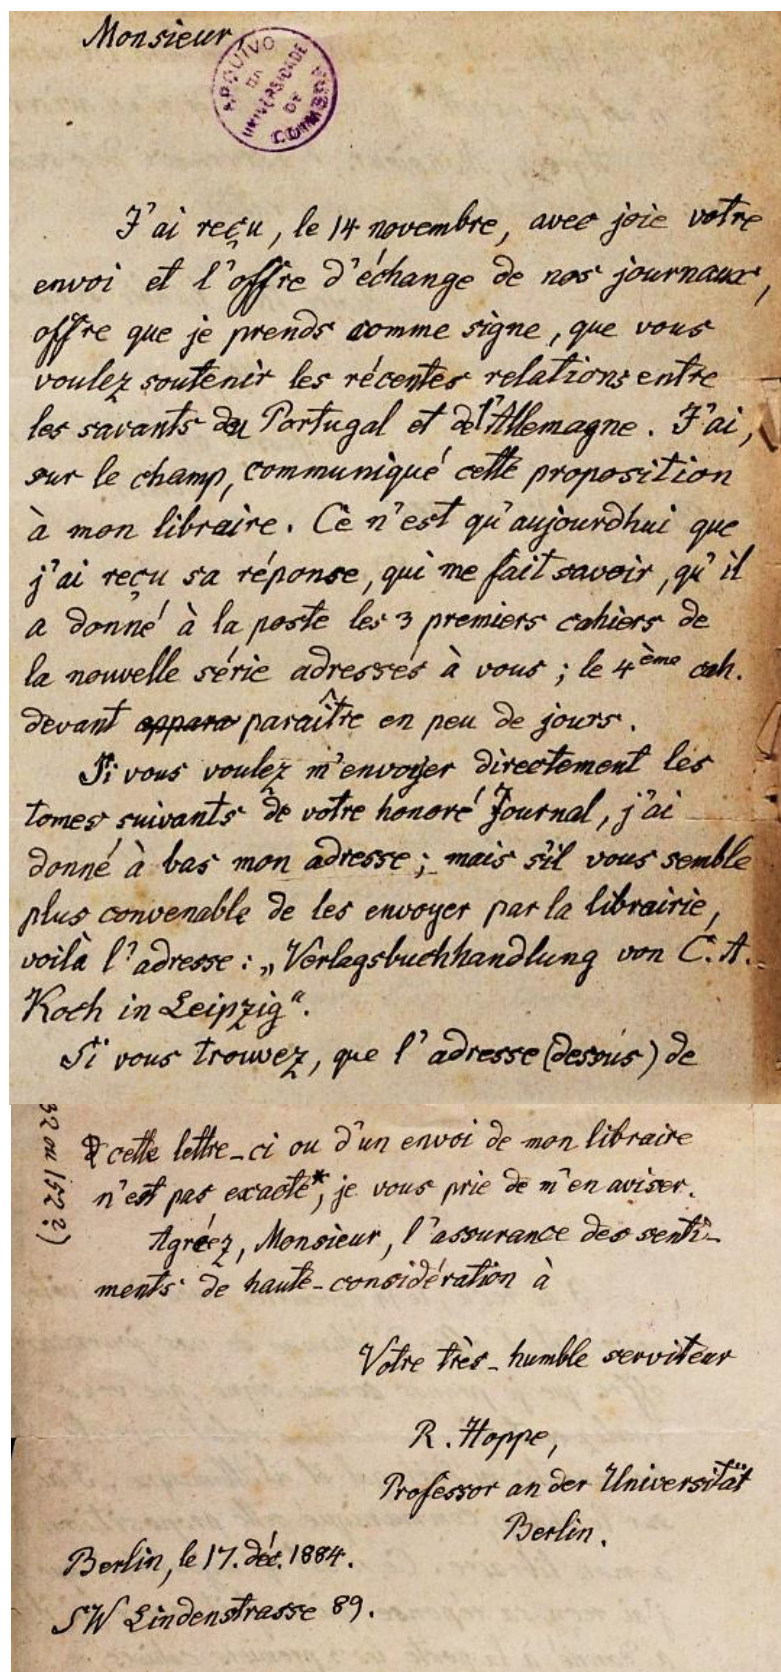 Monsieur,
ARQUIVO DA UNIVERSIDADE DE COIMBRA
J'ai reçu, le 14 novembre, avec joie votre
envoi et l'offre d'échange de nos journaux,
offre que je prends comme signe, que vous
voulez soutenir les récentes relations entre
les savants du Portugal et de l'Allemagne. J'ai,
sur le champ, communiqué cette proposition
à mon libraire. Ce n'est qu'aujourdhui que
j'ai reçu sa réponse, qui me fait savoir, qu'il
a donné à la poste les 3 premiers cahiers de
la nouvelle série adressés à vous; le 4ème cah.
devant appara paraître en peu de jours.
Si vous voulez m'envoyer directement les
tomes suivants de votre honoré Journal, j'ai
donné à bas mon adresse; mais s'il vous semble
plus convenable de les envoyer par la librairie,
voilà l'adresse: „Verlagsbuchhandlung von C. A.
Koch in Leipzig“.
Si vous trouvez, que l'adresse (dessus) de
cette lettre-ci ou d'un envoi de mon libraire
n'est pas exacte*, je vous prie de m'en aviser.
Agréez, Monsieur, l'assurance des senti-
ments de haute-considération à
Votre très-humble serviteur
R. Hoppe,
Professor an der Universität
Berlin.
Berlin, le 17. déc. 1884.
SW Lindenstrasse 89.